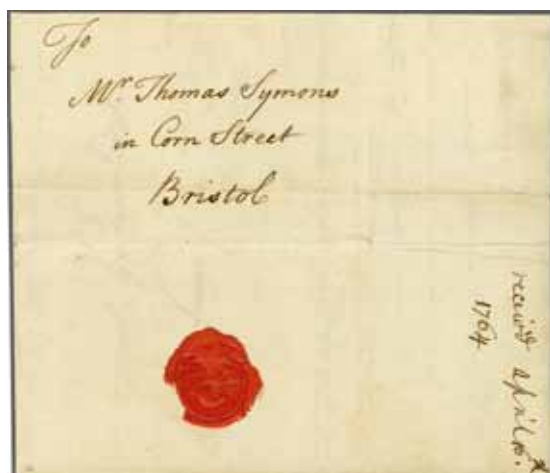 To
Mr. Thomas Symons
in Corn Street
Bristol
receivd April
1764